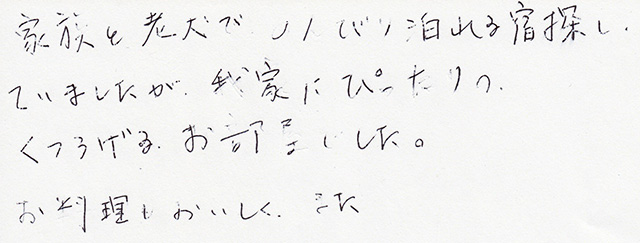 家族と老犬でノンビリ泊れる宿探し
ていましたが、我家にぴったりの
くつろげるお部屋でした。
お料理もおいしく、また